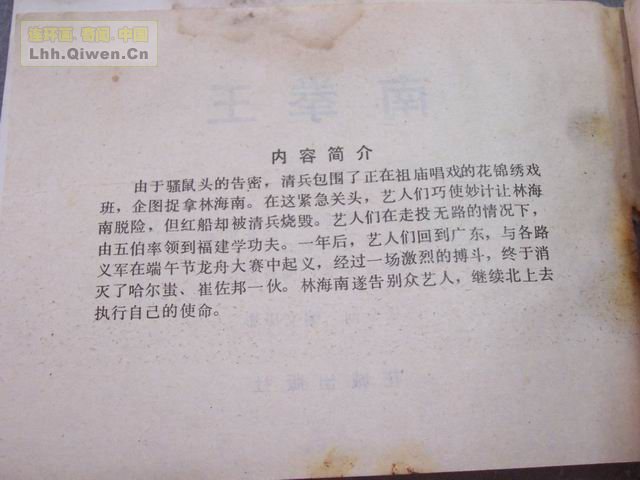 连环画.奇闻.中国
Lhh.Qiwen.Cn
南拳王
内容简介
由于骚鼠头的告密，清兵包围了正在祖庙唱戏的花锦绣戏
班，企图捉拿林海南。在这紧急关头，艺人们巧使妙计让林海
南脱险，但红船却被清兵烧毁。艺人们在走投无路的情况下，
由五伯率领到福建学功夫。一年后，艺人们回到广东，与各路
义军在端午节龙舟大赛中起义，经过一场激烈的搏斗，终于消
灭了哈尔蚩、崔佐邦一伙。林海南遂告别众艺人，继续北上去
执行自己的使命。
花城出版社